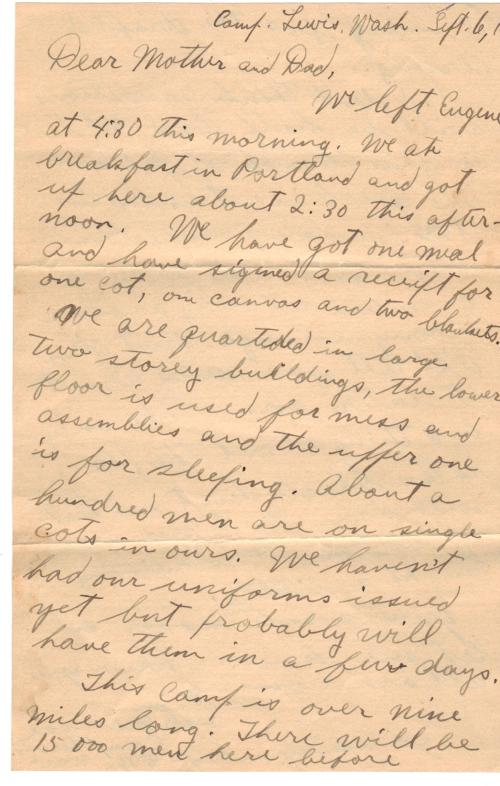 Camp. Lewis, Wash. Sept. 6, 1
Dear Mother and Dad,
We left Eugene
at 4:30 this morning. We ate
breakfast in Portland and got
up here about 2:30 this after-
noon. We have got one meal
and have signed a receipt for
one cot, one canvas and two blankets.
We are quartided in large
two storey buildings, the lower
floor is used for mess and
assemblies and the upper one
is for sleeping. About a
hundred men are on single
cots in ours. We haven't
had our uniforms issued
yet but probably will
have them in a few days.
This camp is over nine
miles long. There will be
15 000 men here before